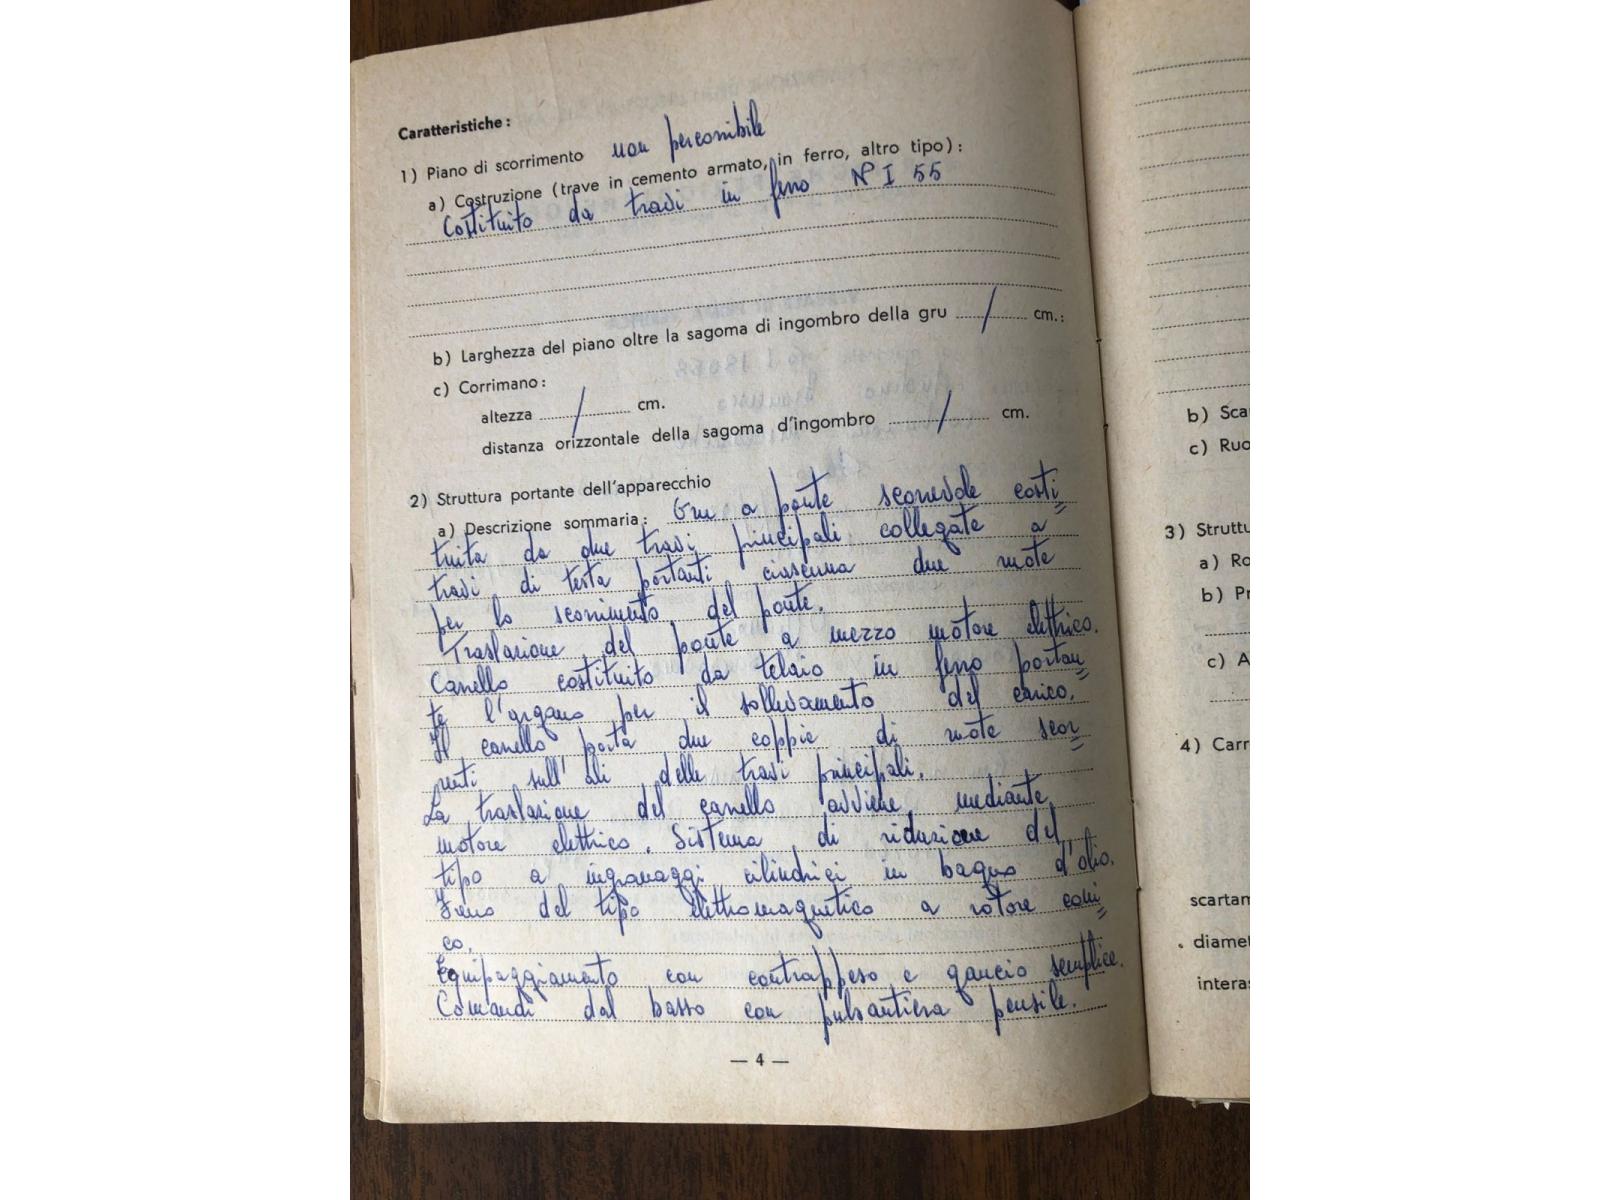 Caratteristiche :
1) Piano di scorrimento non percorribile
a) Costruzione (trave in cemento armato, in ferro, altro tipo) :
Costituito da travi in ferro N° I 55
b) Larghezza del piano oltre la sagoma di ingombro della gru / cm.:
c) Corrimano :
altezza / cm.
distanza orizzontale della sagoma d'ingombro / cm.
2) Struttura portante dell'apparecchio
a) Descrizione sommaria : Gru a ponte scorrevole costi=
tuita da due travi principali collegate a
travi di testa portanti ciascuna due ruote
per lo scorrimento del ponte.
Traslazione del ponte a mezzo motore elettrico.
Carrello costituito da telaio in ferro portan=
te l'argano per il sollevamento del carico.
Il carrello porta due coppie di ruote scor=
renti sull'ali delle travi principali.
La traslazione del carrello avviene mediante
motore elettrico. Sistema di riduzione del
tipo a ingranaggi cilindrici in bagno d'olio.
Freno del tipo elettromagnetico a rotore coni=
co.
Equipaggiamento con contrappeso e gancio semplice.
Comandi dal basso con pulsantiera pensile.
— 4 —
b) Sca
c) Ruo
3) Struttu
a) Ro
b) Pr
c) A
4) Carr
scartam
diamet
interas